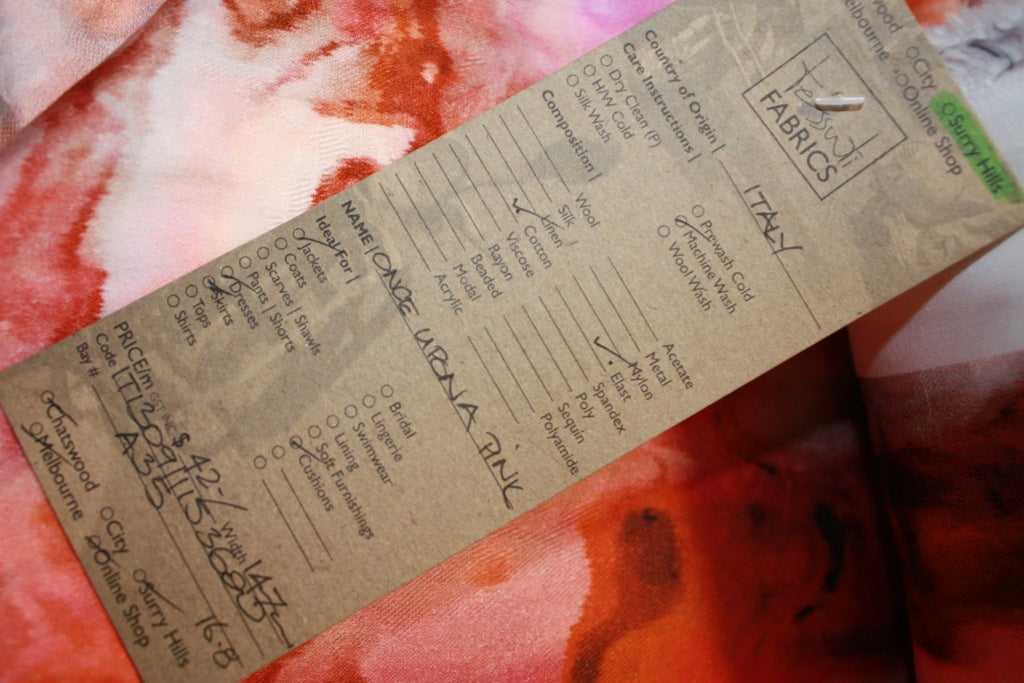 wood
Melbourne
City
Online Shop
Surry Hills
tessuti
FABRICS
Country of Origin | ITALY
Care Instructions |
Dry Clean (P)
H/W Cold
Silk Wash
Prewash Cold
Machine Wash
Wool Wash
Composition |
Wool
Silk
Linen
Cotton
Viscose
Rayon
Beaded
Modal
Acrylic
Acetate
Metal
Nylon
Elast
Spandex
Poly
Sequin
Polyamide
NAME | ONCE UPON A PINK
Ideal For |
Jackets
Coats
Scarves | Shawls
Pants | Shorts
Dresses
Skirts
Tops
Shirts
Bridal
Lingerie
Swimwear
Lining
Soft Furnishings
Cushions
PRICE/m GST INC $ 42-/ Width 147
Code
Bay # A35 16-B
Chatswood
Melbourne
City
Online Shop
Surry Hills